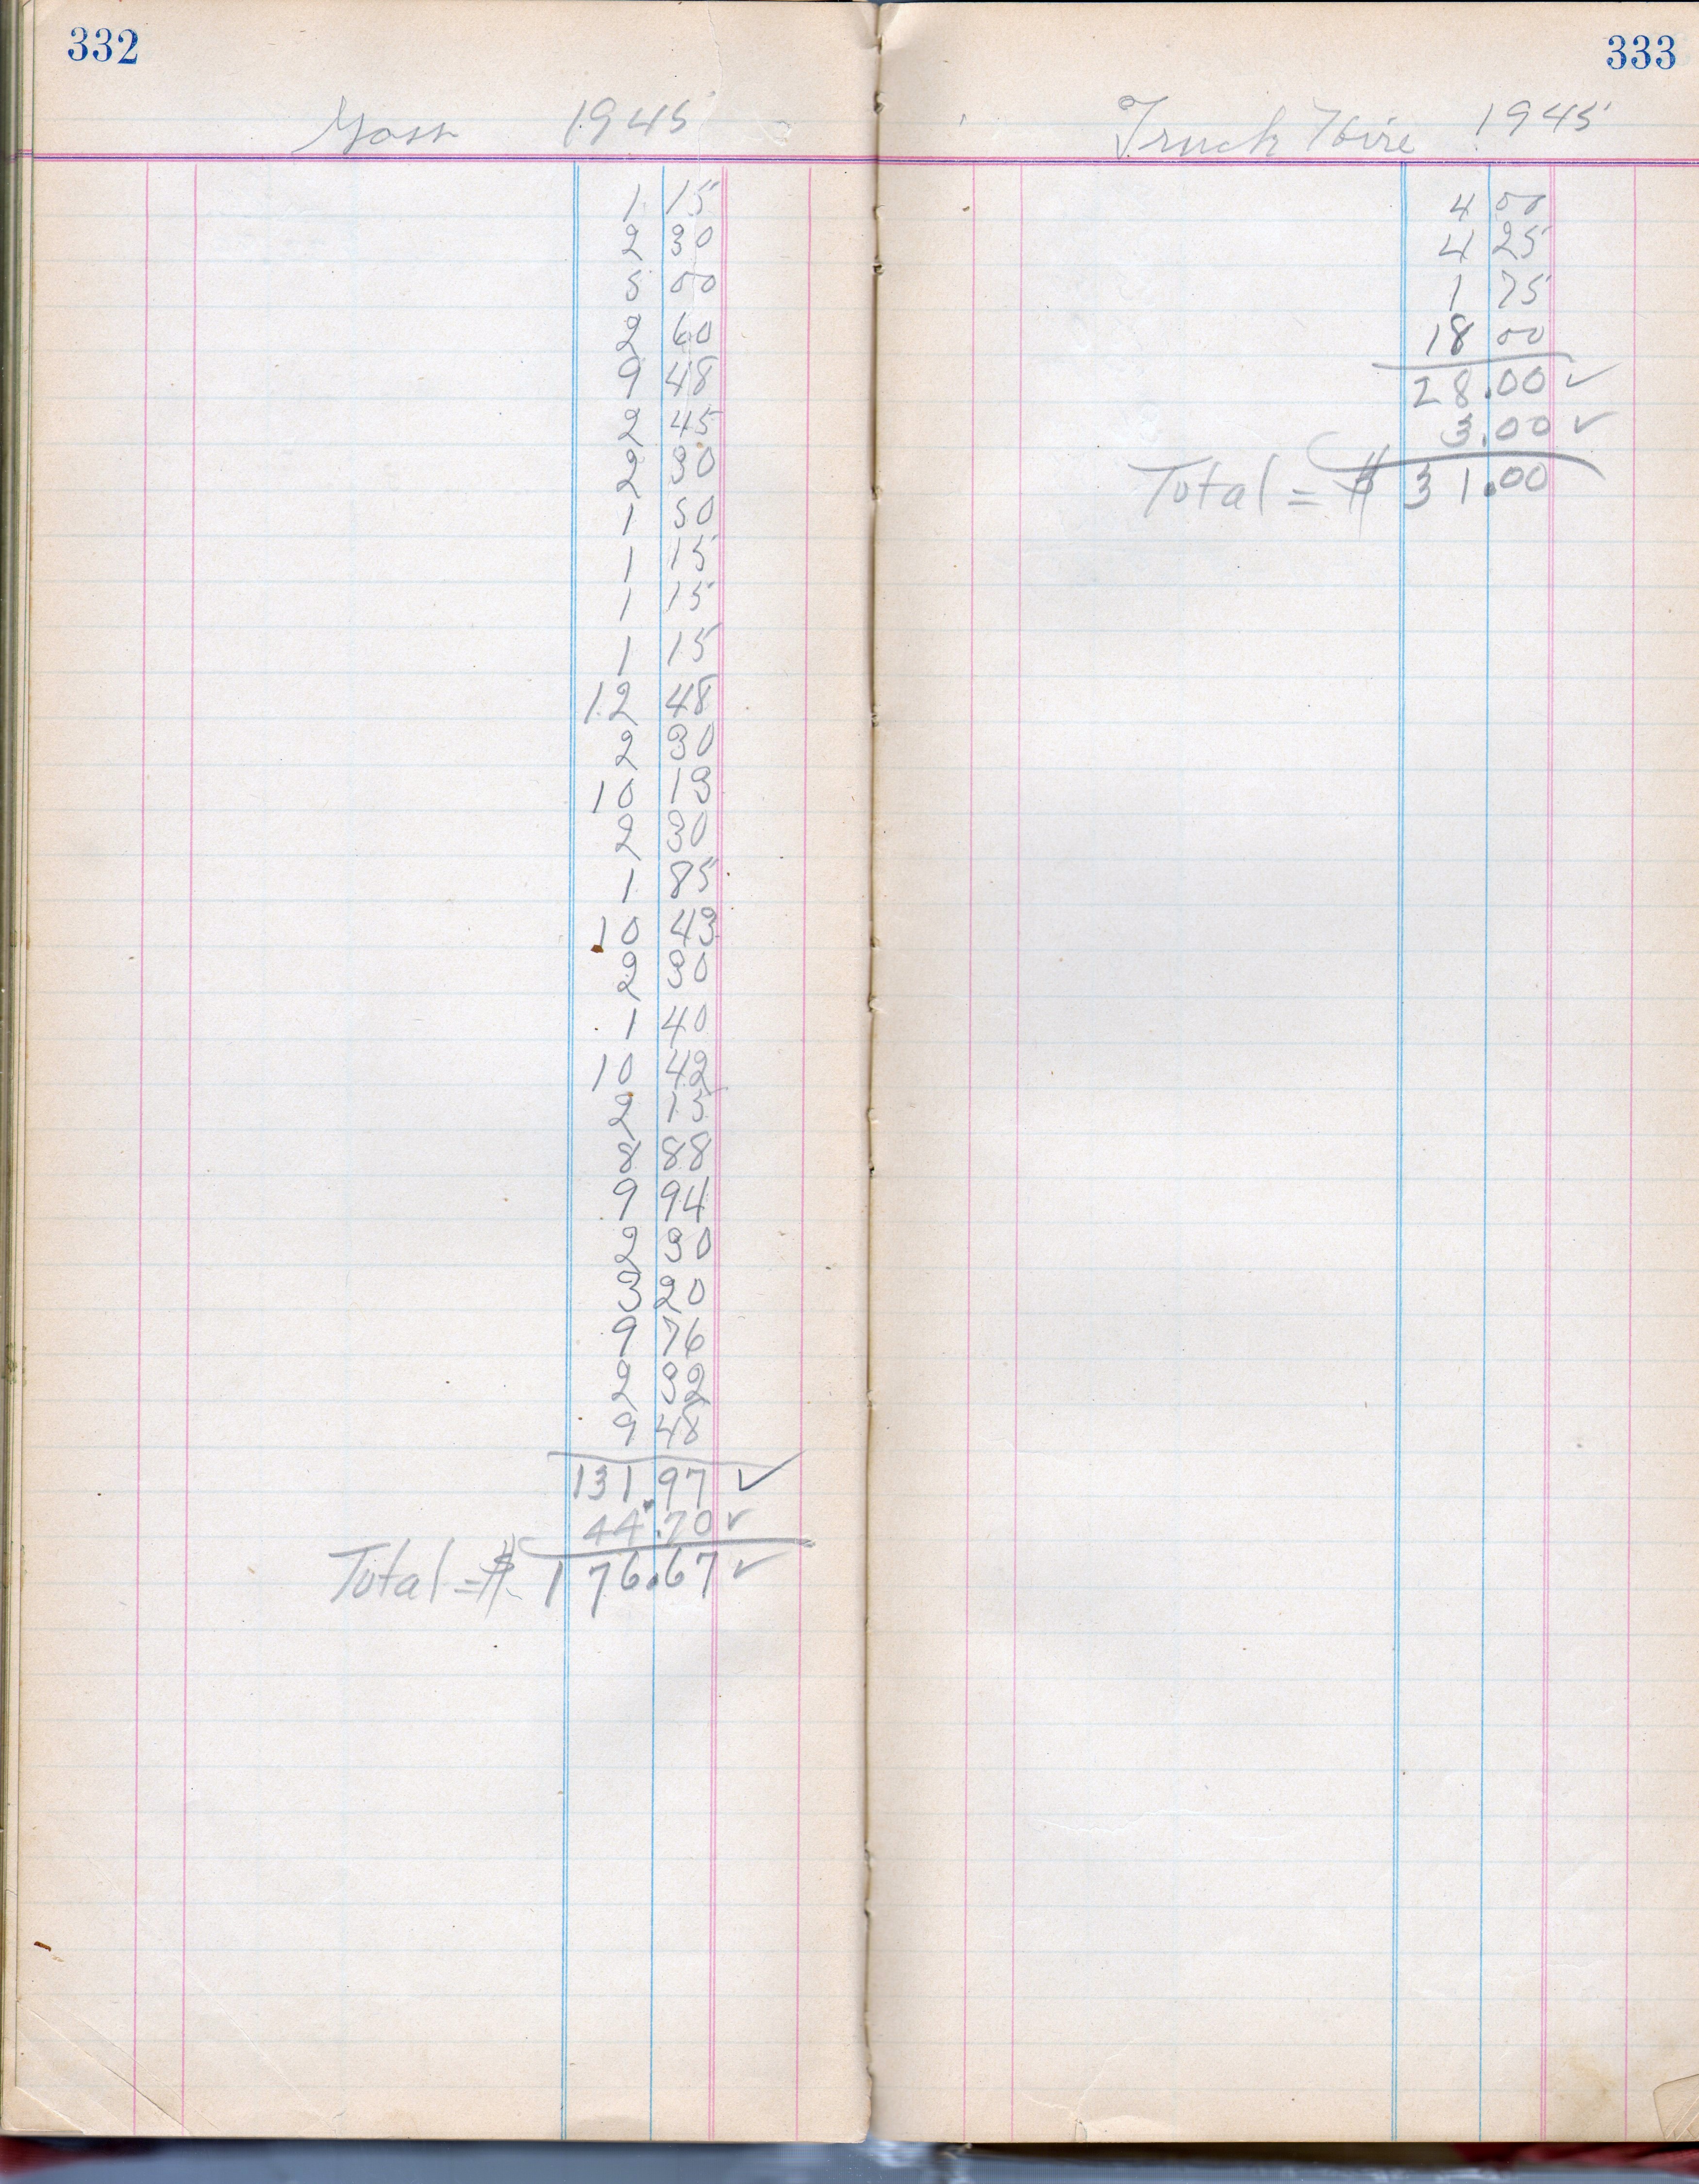 332
Gass 1945
1 15
2 30
5 00
2 60
9 48
2 45
2 30
1 50
1 15
1 15
1 15
12 48
2 30
10 13
2 30
1 85
10 43
2 30
1 40
10 42
2 15
8 88
9 94
2 30
3 20
9 76
2 32
9 48
131.97 ✓
44.70 ✓
Total = $ 176.67 ✓
333
Truck Hire 1945
4 00
4 25
1 75
18 00
28.00 ✓
3.00 ✓
Total = $ 31.00